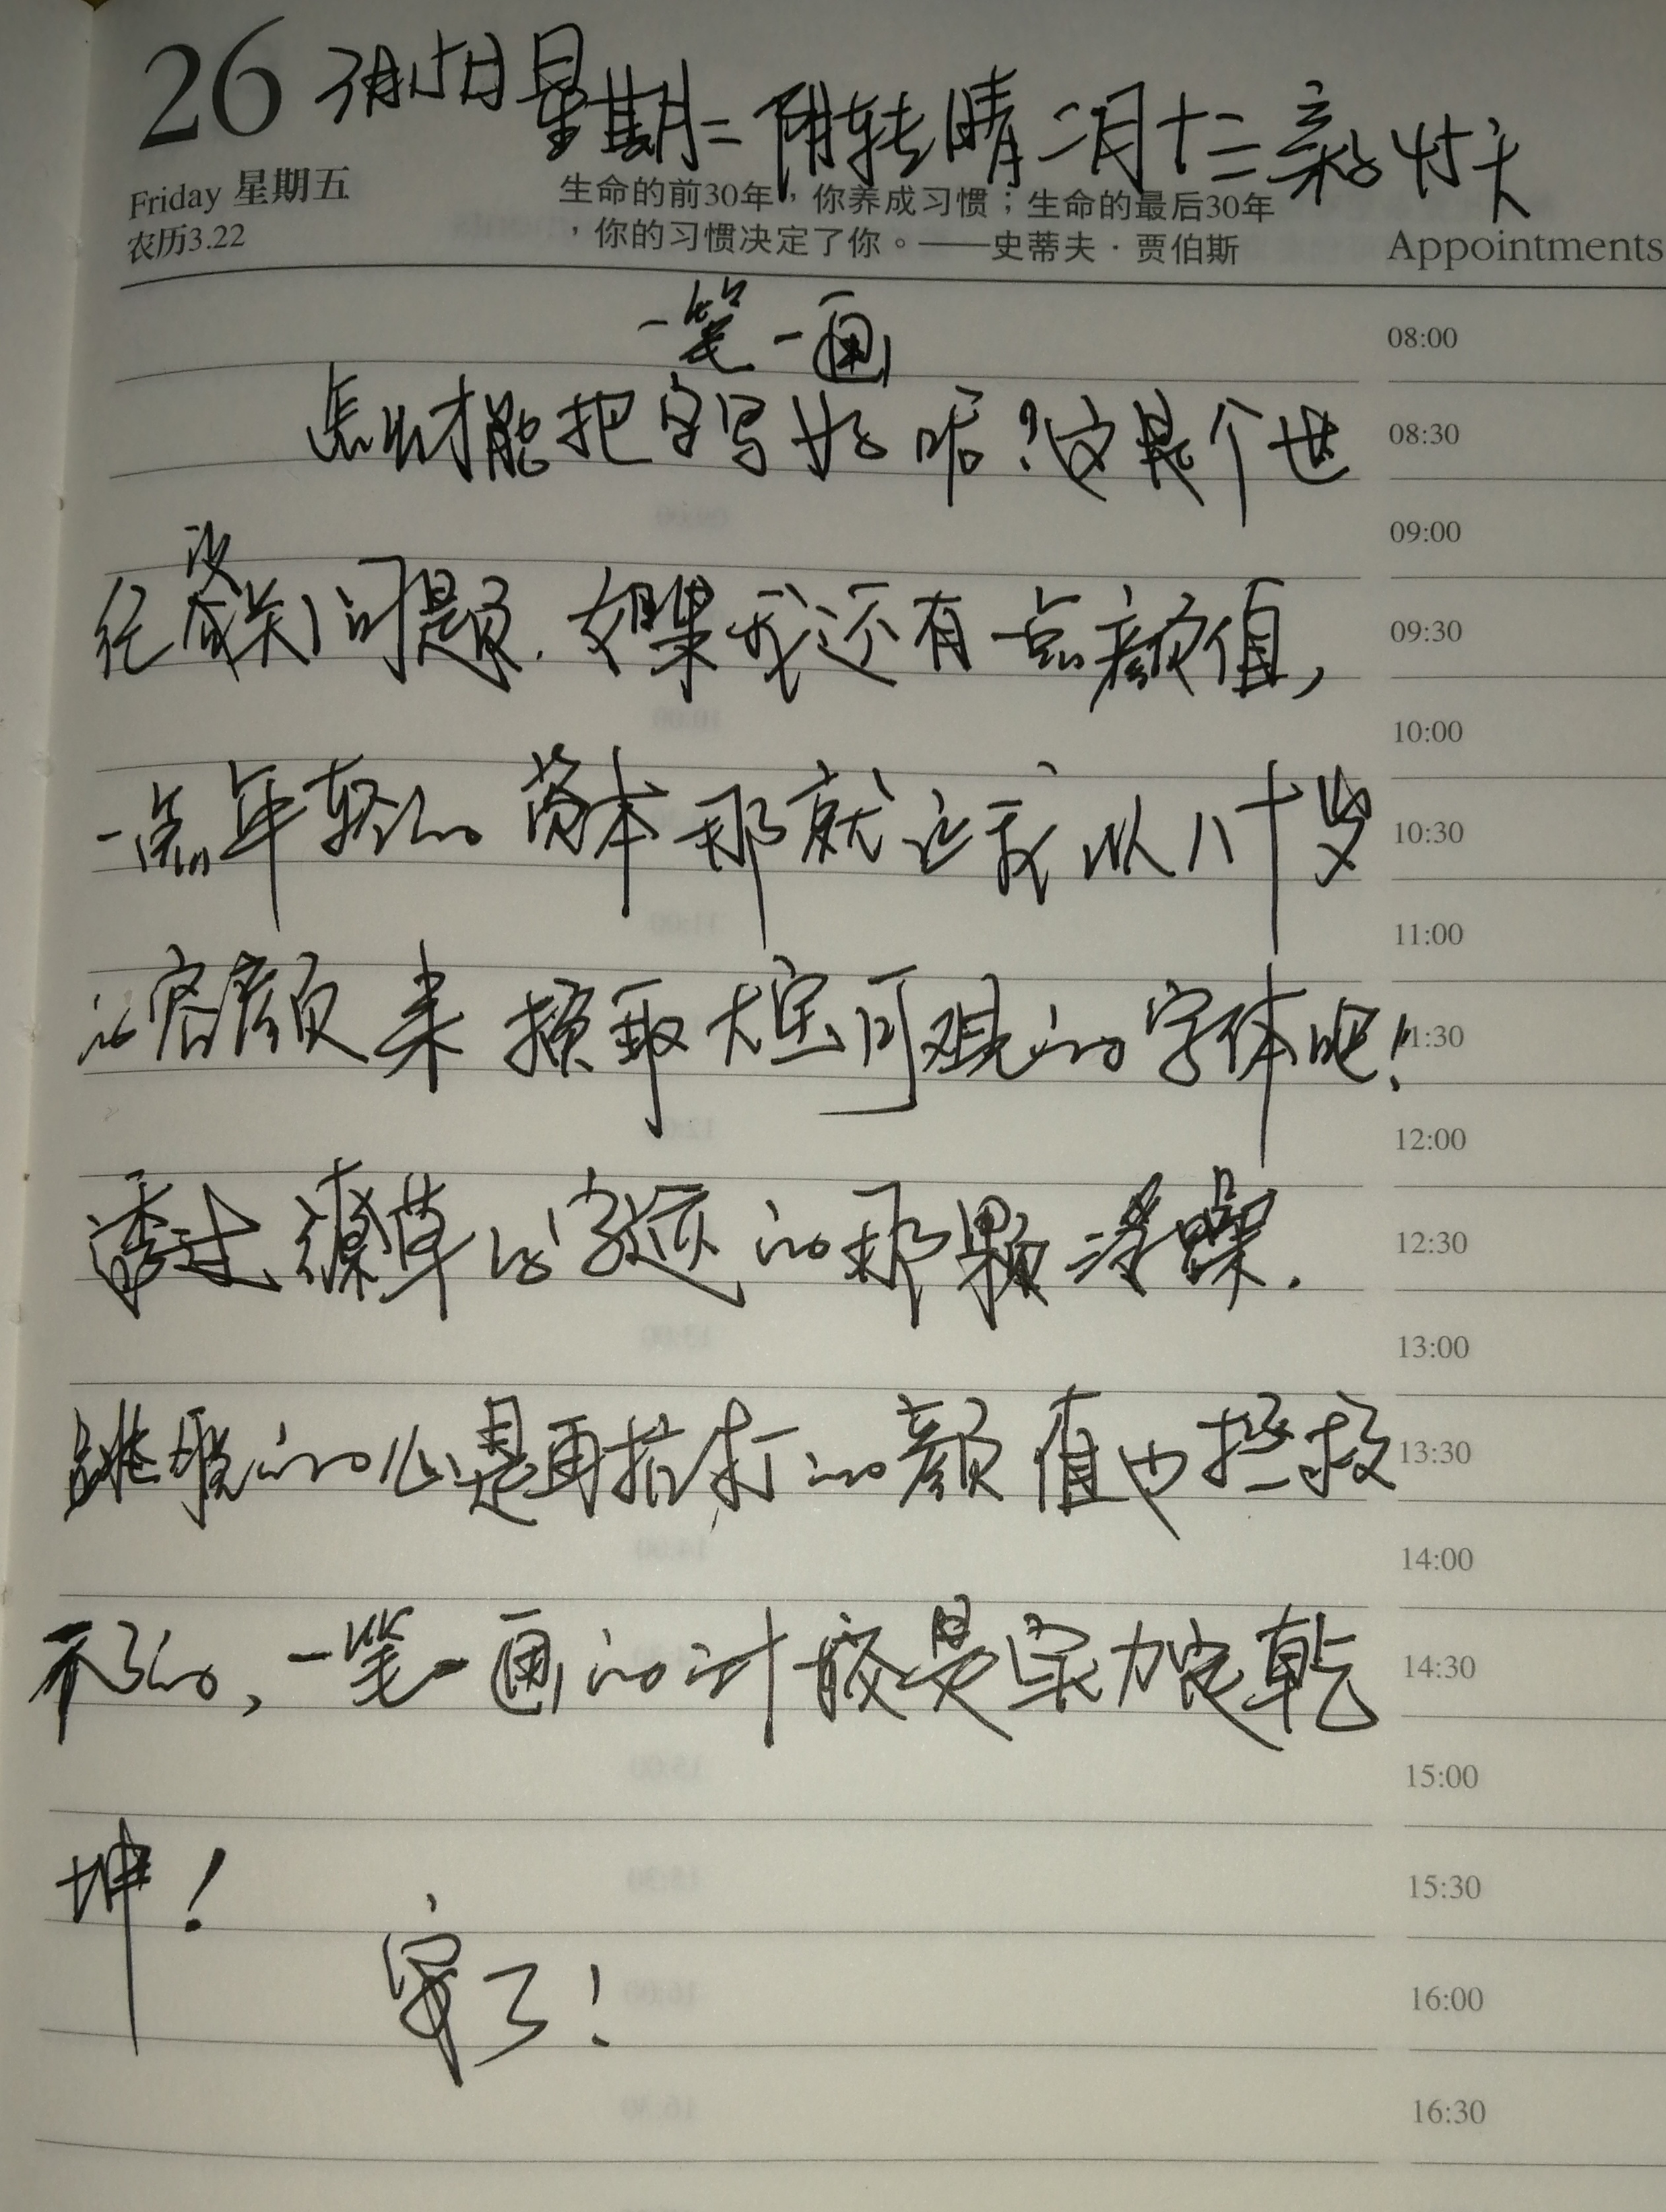 26 3月15日星期二 阴转晴 二月十三
Friday 星期五
农历3.22
生命的前30年，你养成习惯；生命的最后30年
，你的习惯决定了你。——史蒂夫·贾伯斯
Appointments
一笔一画
怎么才能把字写好呢？这是个世
纪没关问题.如果我还有一点颜值，
一点年轻的资本那就让我以八十岁
的容颜来换取大室可观的字体吧！
透过潦草的字迹的那颗浮躁.
跳脱的心是再抗打的颜值也拯救
不了的，一笔一画的计较是实力定乾
坤！
08:00
08:30
09:00
09:30
10:00
10:30
11:00
11:30
12:00
12:30
13:00
13:30
14:00
14:30
15:00
15:30
16:00
16:30